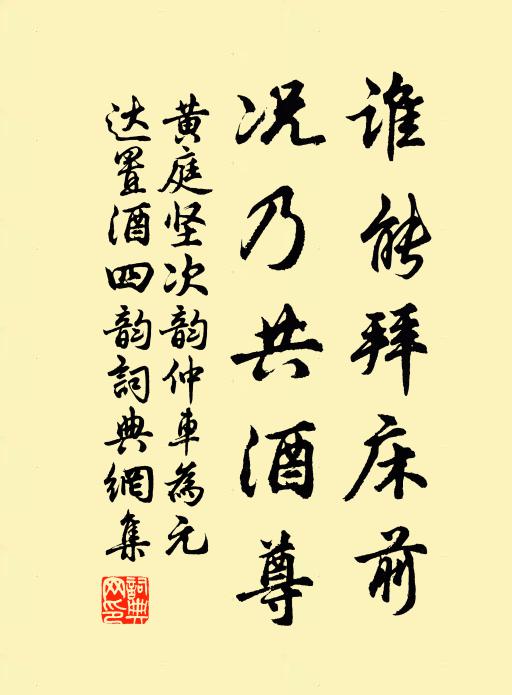 谁能拜床前
况乃共酒尊
黄庭坚次韵仲车为元
达置酒四韵词典网集
詞典
网印